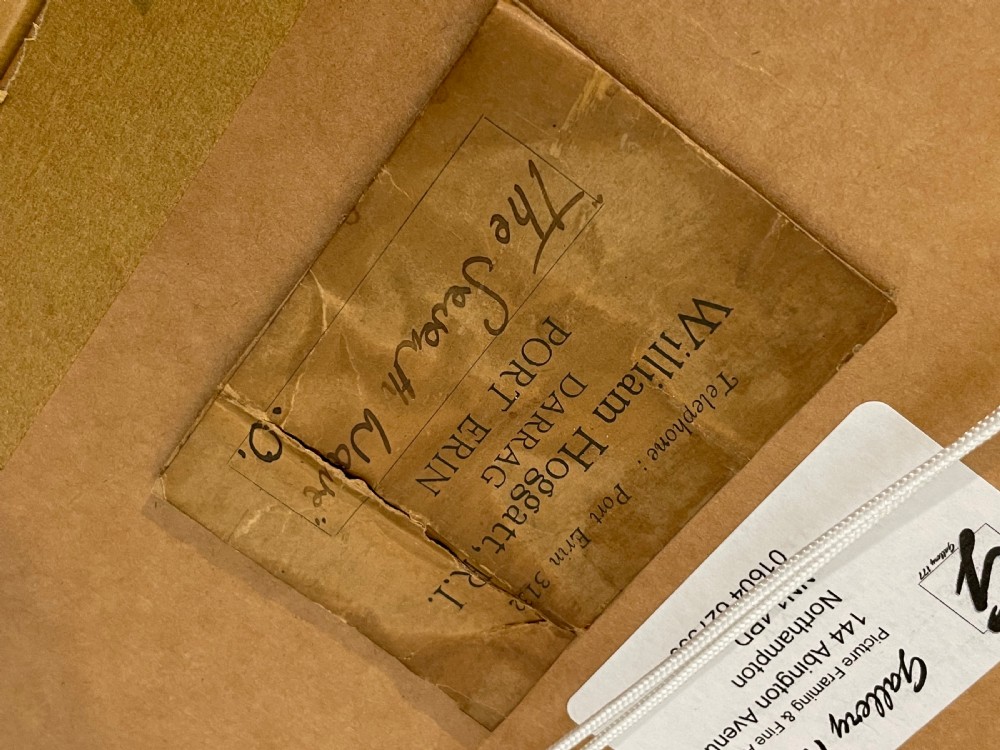 Telephone: Port Erin 3132
William Hoggatt, R.I.
DARRAG
PORT ERIN
"The Seventh Wave"
O.
Gallery 177
Gallery
Picture Framing & Fine
144 Abington Avenu
Northampton
NN1 4PD
01604